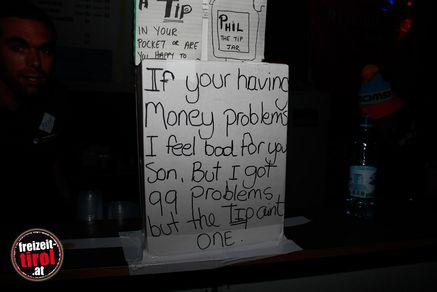 A TIP
IN YOUR
POCKET OR ARE
YOU HAPPY TO
PHIL
THE TIP
JAR
If your having
Money problems
I feel bad for you
Son, But I got
99 Problems
but the TIP aint
ONE.
freizeit-
tirol
.at